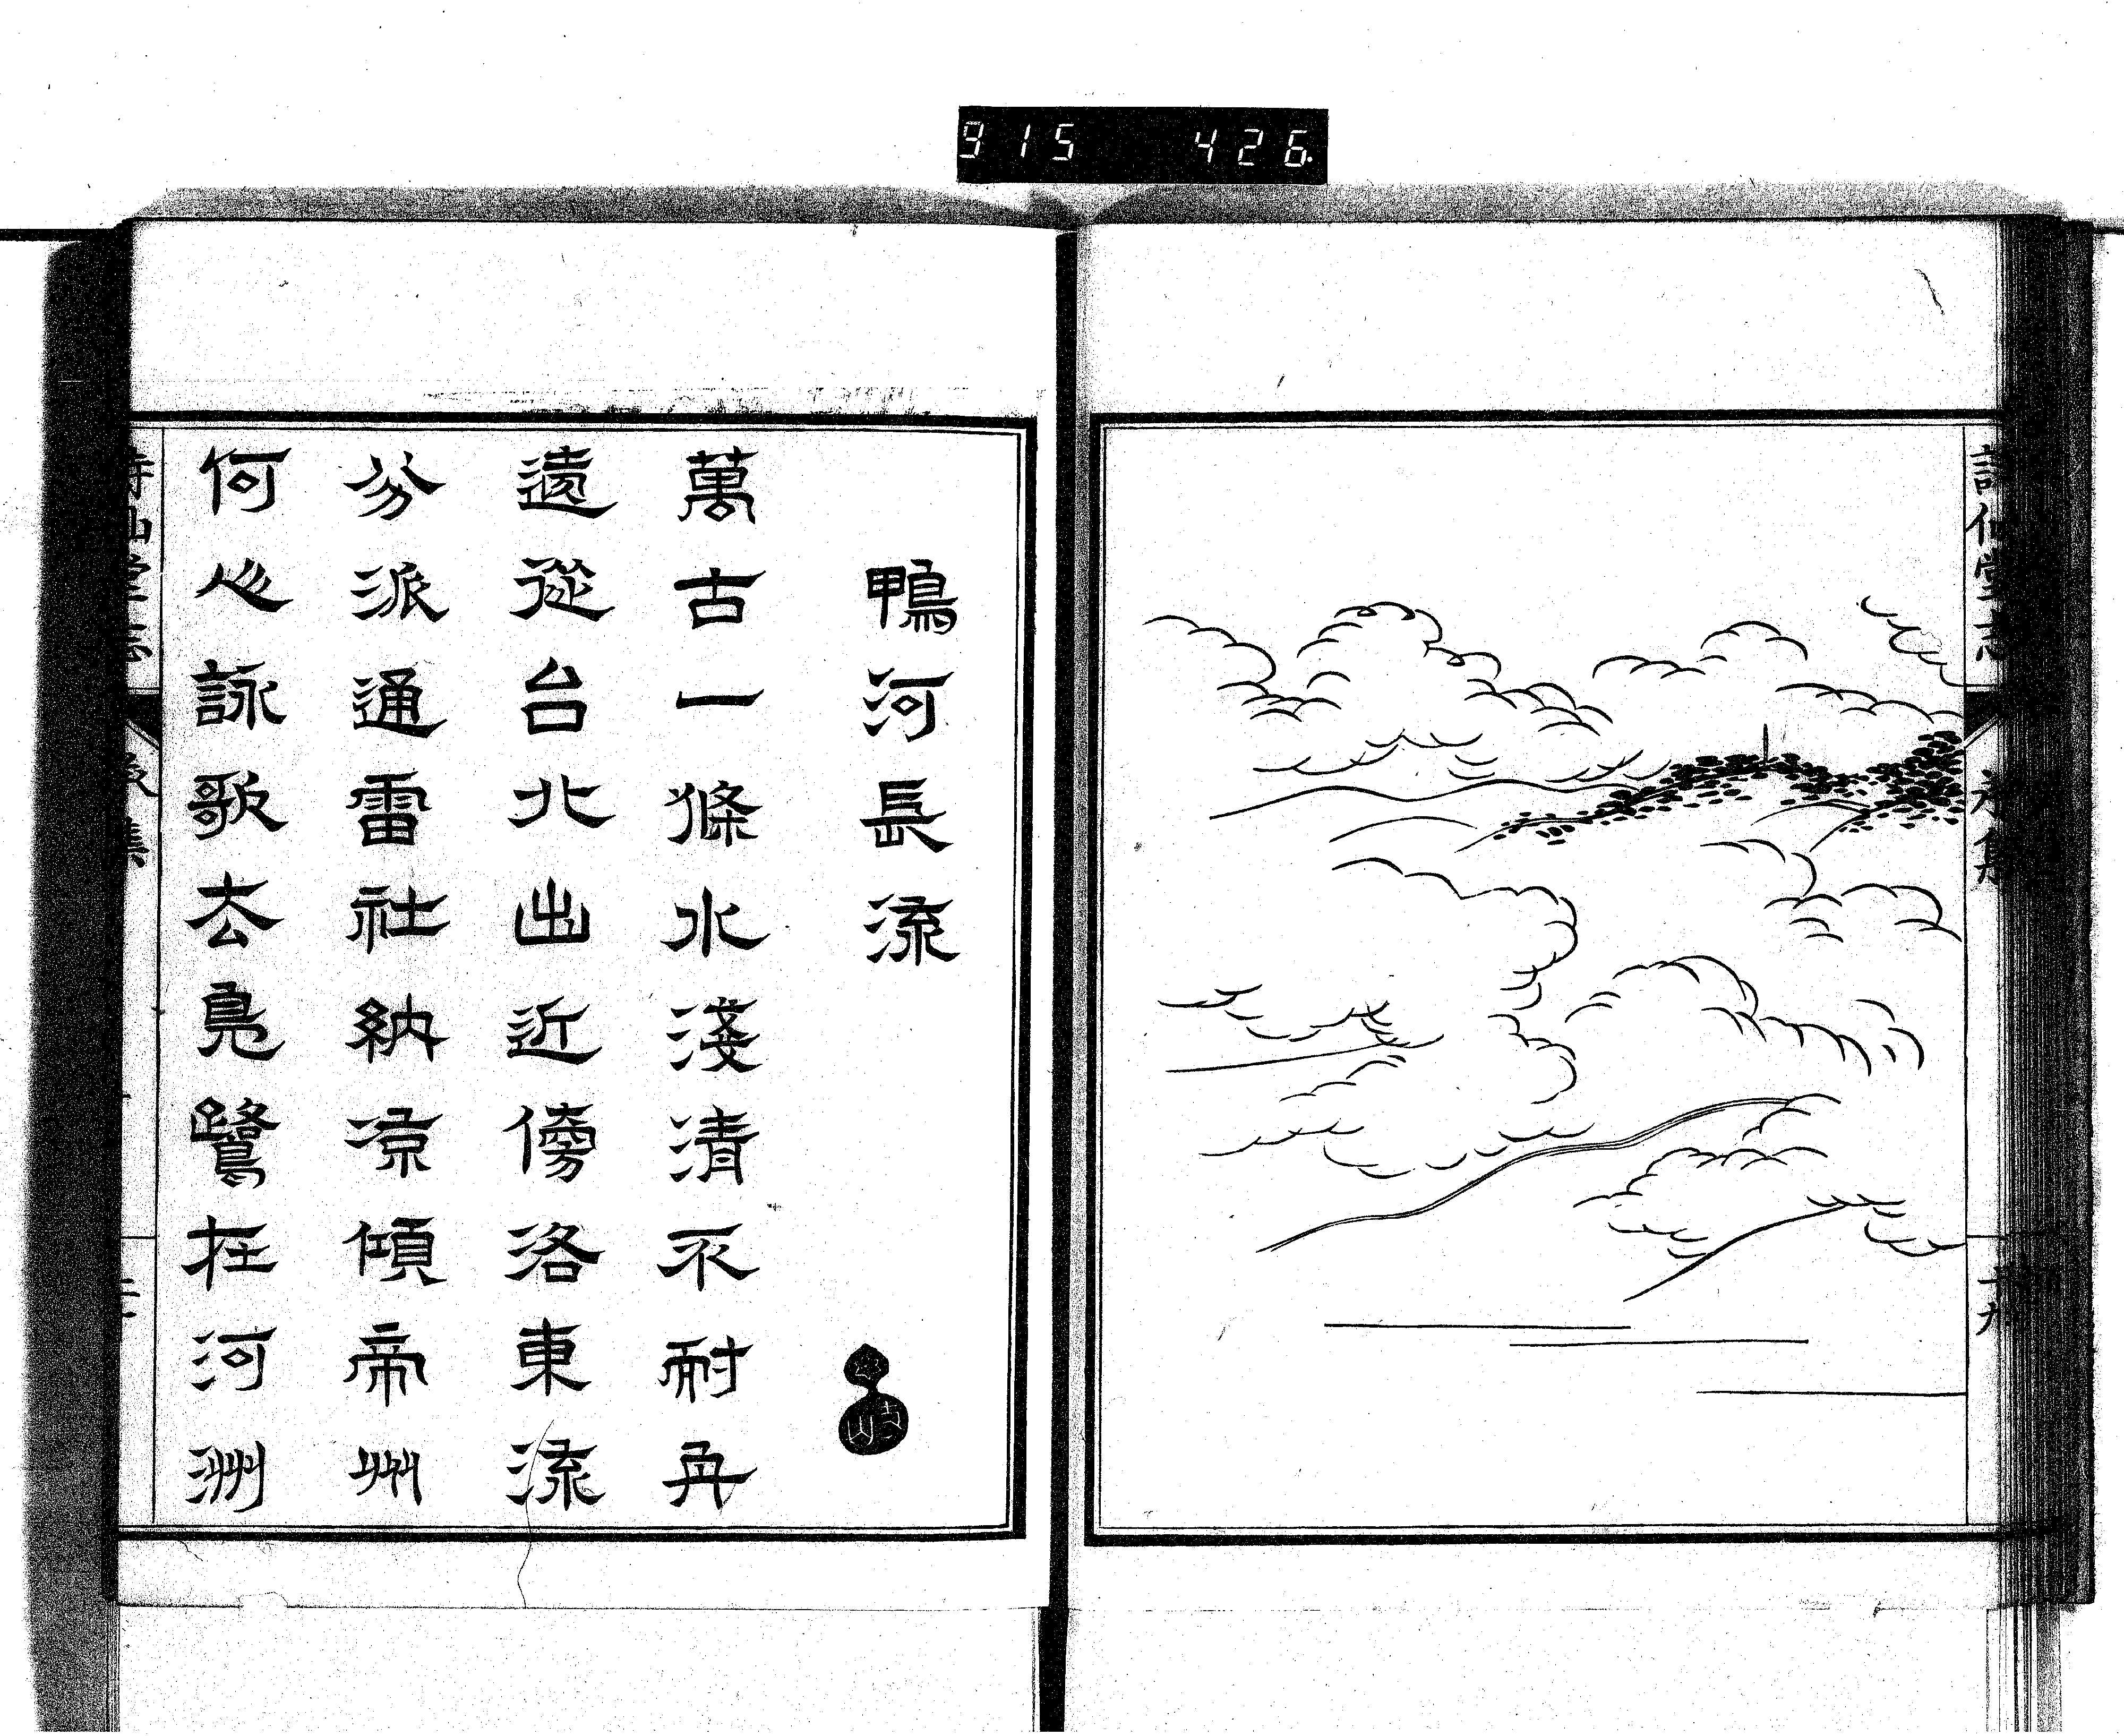 915 426
詩仙堂志
鴨河長流
萬古一條水淺清不耐舟
遠從台北出近傍洛東流
分派通雷社納涼傾帝州
何心詠歌去鳧鷺在河洲